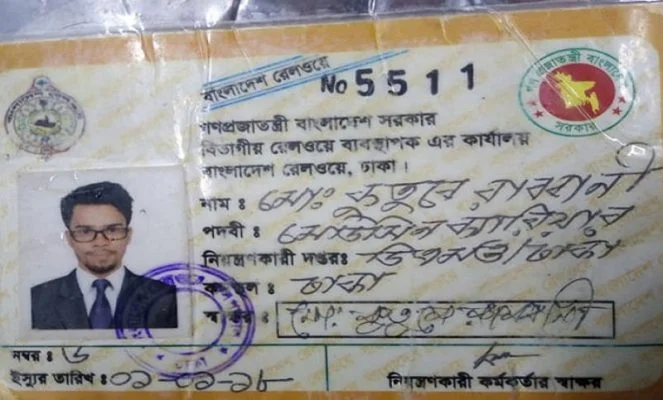 বাংলাদেশ রেলওয়ে
No 5511
গণপ্রজাতন্ত্রী বাংলাদেশ সরকার
গণপ্রজাতন্ত্রী বাংলাদেশ সরকার
বিভাগীয় রেলওয়ে ব্যবস্থাপক এর কার্যালয়
বাংলাদেশ রেলওয়ে, ঢাকা।
নাম ঃ মোঃ কুতুবে রাব্বানী
পদবী ঃ মেডিসিন ক্যারিয়ার
নিয়ন্ত্রণকারী দপ্তরঃ ডিএমও/ঢাকা
ঃ ঢাকা
স্বাক্ষর ঃ মোঃ কুতুবে
নম্বর ঃ ৬
ইস্যুর তারিখ ঃ ০১-০১-১৮
নিয়ন্ত্রণকারী কর্মকর্তার স্বাক্ষর